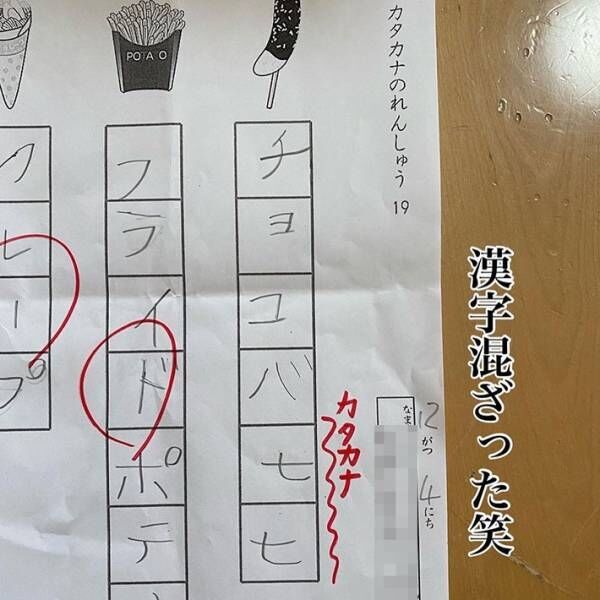 カタカナのれんしゅう 19
漢字混ざった笑
12がつ 4にち
なま
チョコバ七七
カタカナ
POTA O
フライドポテ
クレープ